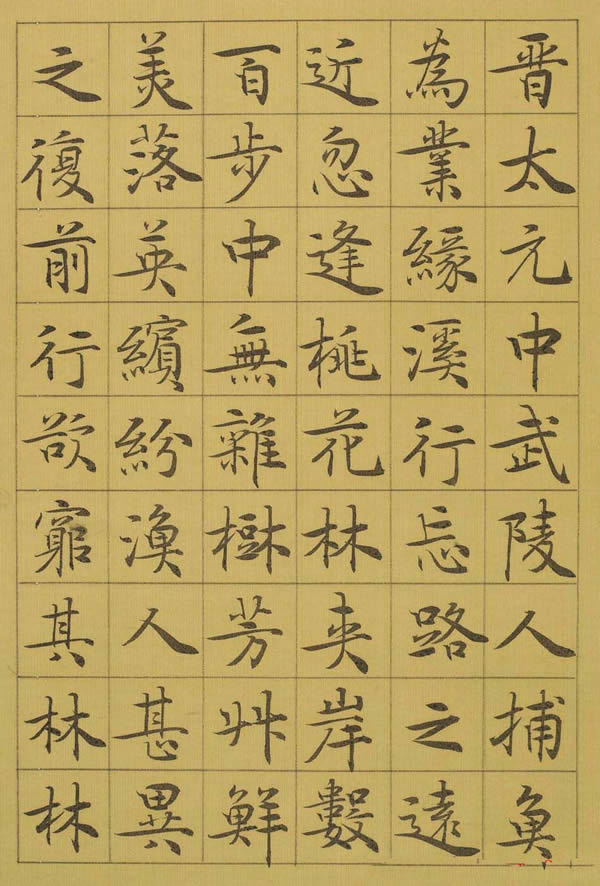 晉太元中武陵人捕魚
為業緣溪行忘路之遠
近忽逢桃花林夾岸數
百步中無雜樹芳艸鮮
美落英繽紛漁人甚異
之復前行欲窮其林林